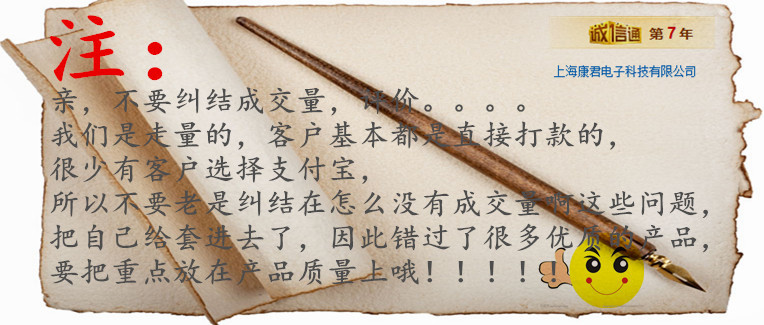 诚信通 第7年
上海康君电子科技有限公司
注：
亲，不要纠结成交量，评价。。。。
我们是走量的，客户基本都是直接打款的，
很少有客户选择支付宝，
所以不要老是纠结在怎么没有成交量啊这些问题，
把自己给套进去了，因此错过了很多优质的产品，
要把重点放在产品质量上哦！！！！！